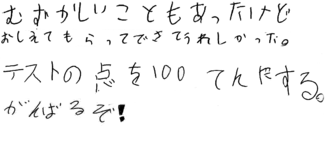 むずかしいこともあったけど
おしえてもらってできてうれしかった。
テストの点を100てんにする。
がんばるぞ!